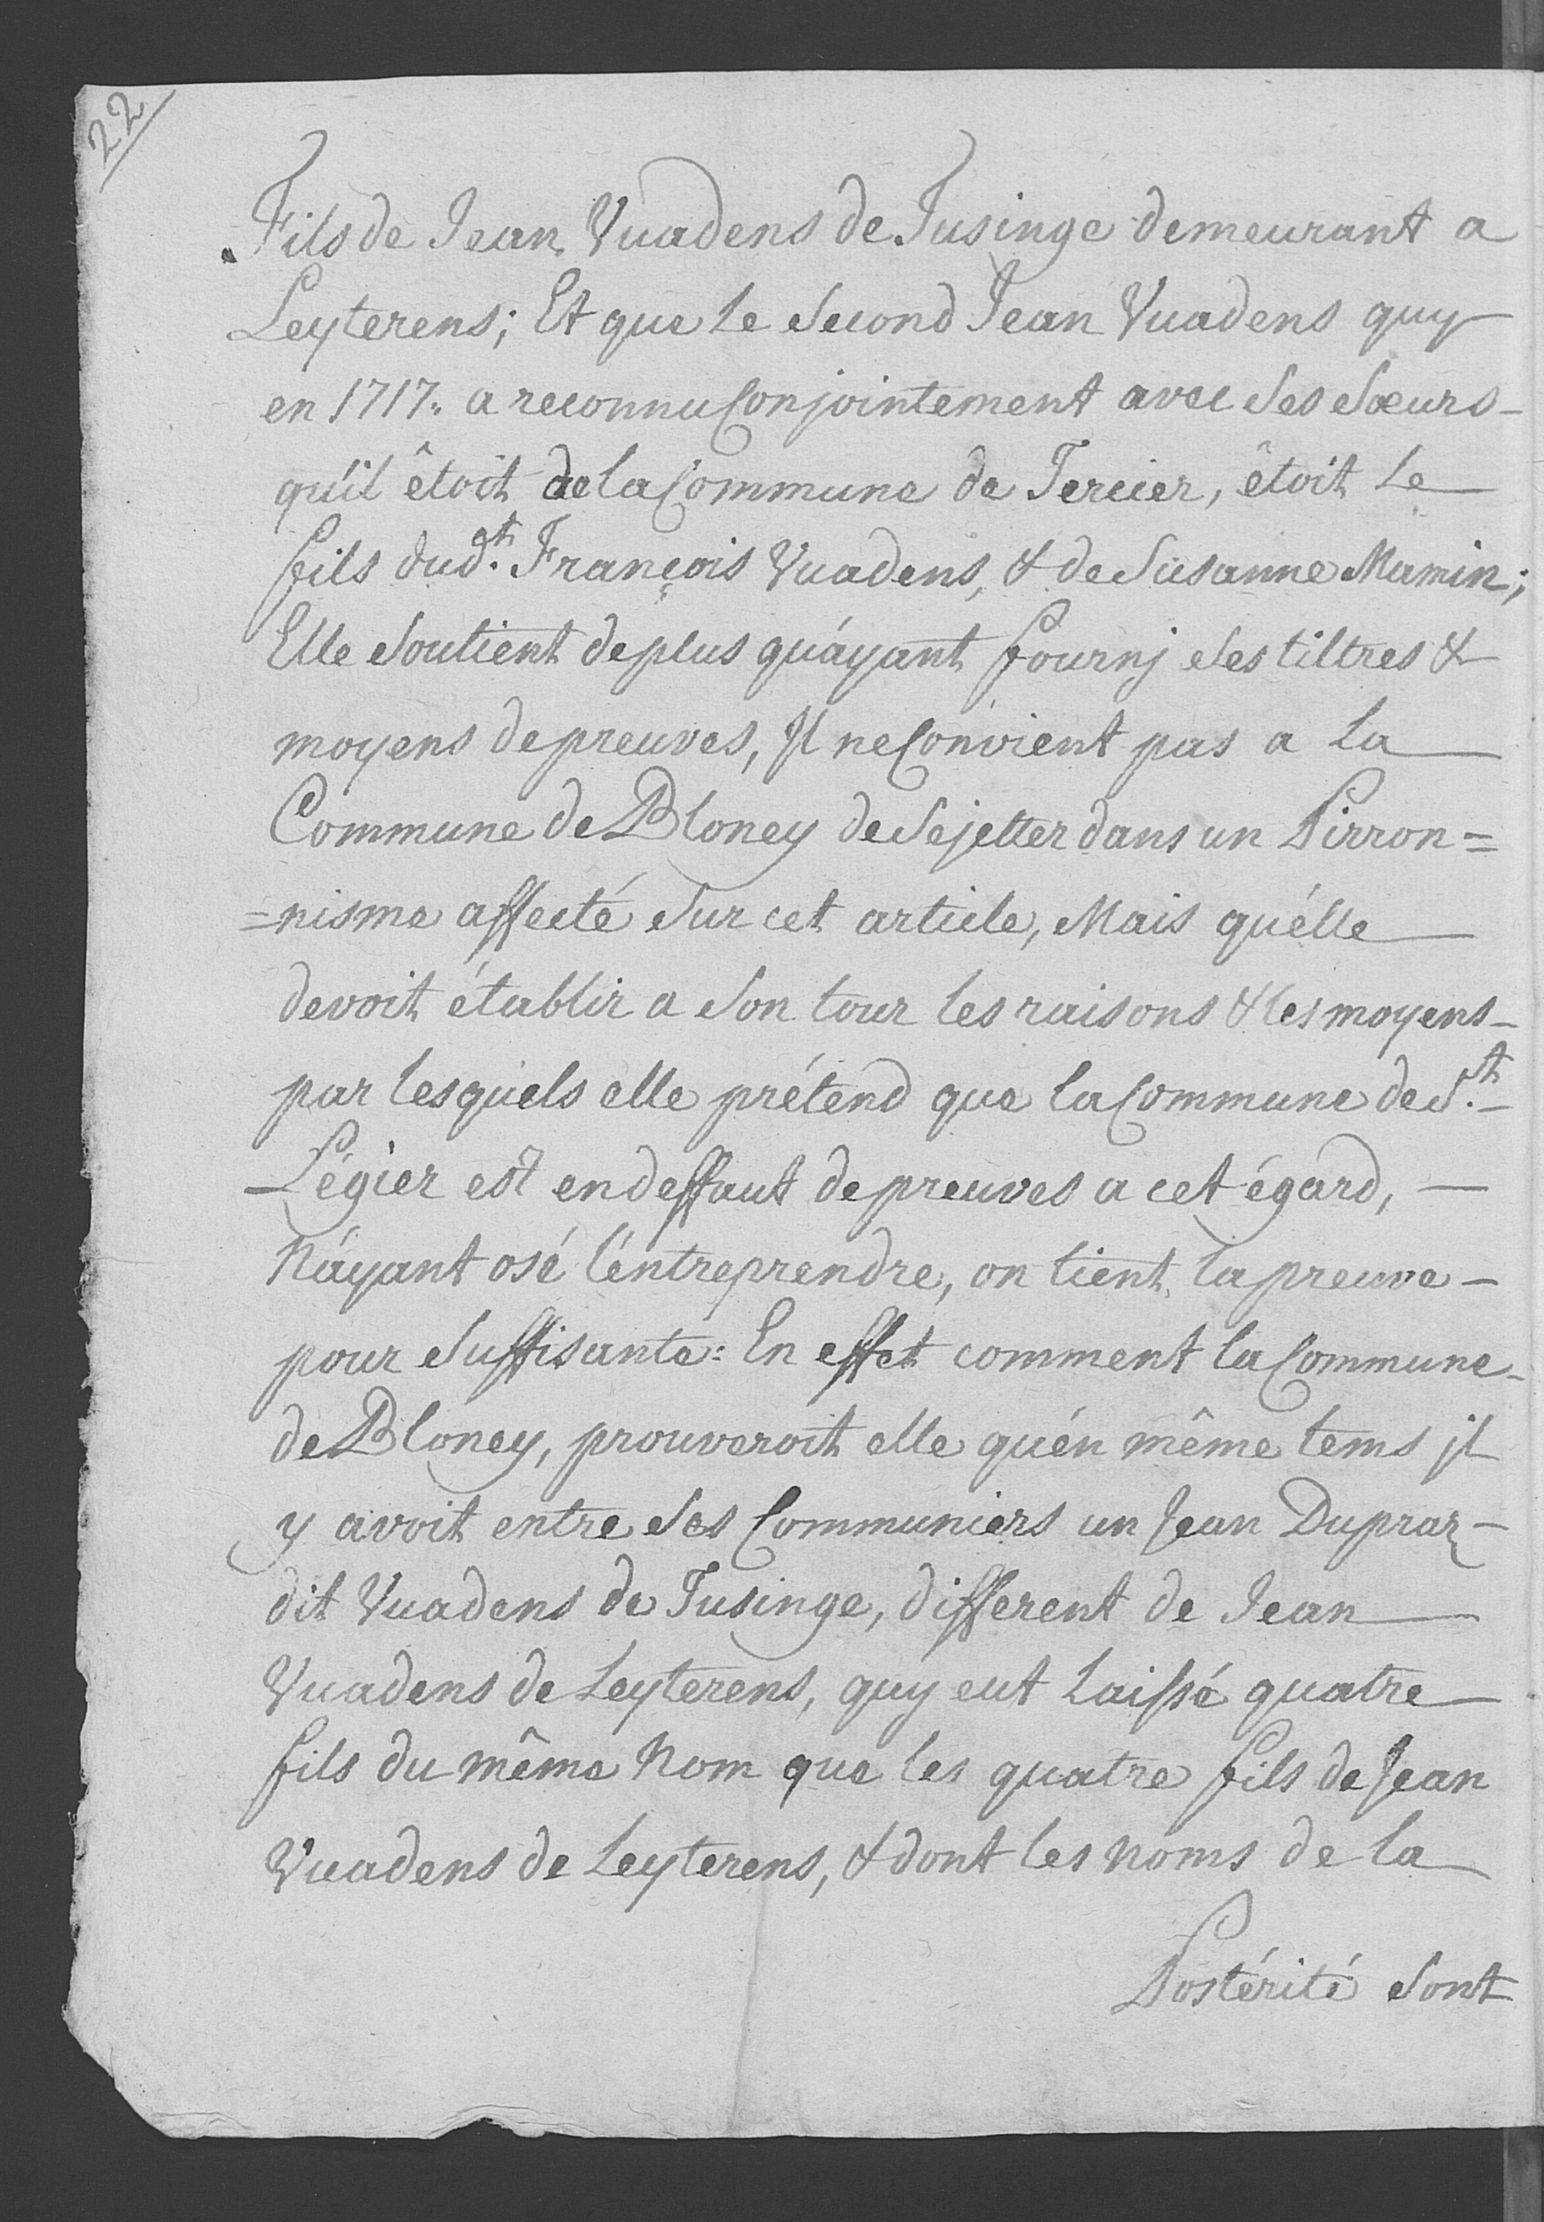 22
Fils de Jean Vuadens de Tusinge demeurant a
Leyterens; Et que le Second Jean Vuadens quy
en 1717. a reconnu Conjointement avec Ses Sœurs
qu'il êtoit de la Commune de Tercier, êtoit Le
fils dud.t François Vuadens, & de Susanne Mamin;
Elle Soutient de plus qu'áyant fournj Ses tiltres &
moyens de preuves, Jl ne Convient pas a La
Commune de Bloney de Se jetter dans un Pirron=
=nisme affecté Sur cet article, Mais qu'élle
devoit établir a Son tour les raisons & les moyens
par lesquels elle prétend que la Commune de S.t
Légier est en deffaut de preuves a cet égard,
N'áyant osé l'éntreprendre, on tient la preuve
pour Suffisante: En effet comment la Commune
de Bloney, prouveroit elle qu'én même tems jl
y avoit entre Ses Communiers un Jean Dupraz
dit Vuadens de Tusinge, different de Jean
Vuadens de Leyterens, quy eut Laissé quatre
fils du même Nom que les quatre fils de Jean
Vuadens de Leyterens, & dont les Noms de la
Postérité Sont